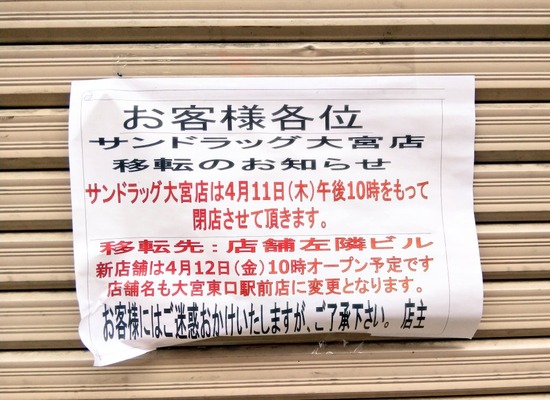 お客様各位
サンドラッグ大宮店
移転のお知らせ
サンドラッグ大宮店は4月11日(木)午後10時をもって
閉店させて頂きます。
移転先:店舗左隣ビル
新店舗は4月12日(金)10時オープン予定です
店舗名も大宮東口駅前店に変更となります。
お客様にはご迷惑おかけいたしますが、ご了承下さい。 店主